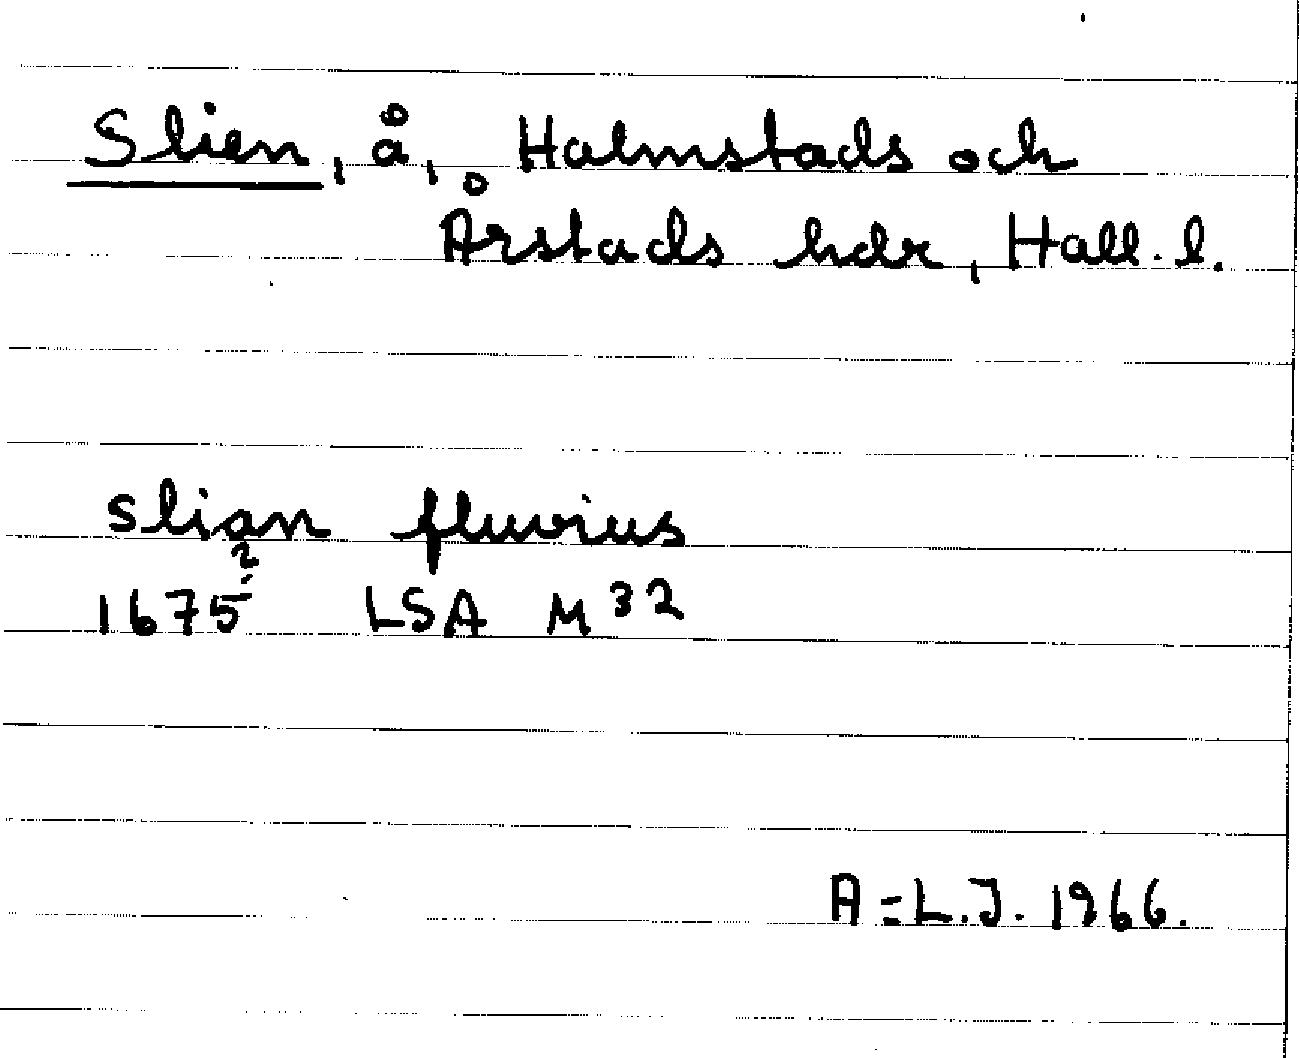 Slien, å, Halmstads och
Årstads hdr, Hall. l.
slian fluvius
1675? LSA M 32
A-L.J. 1966.